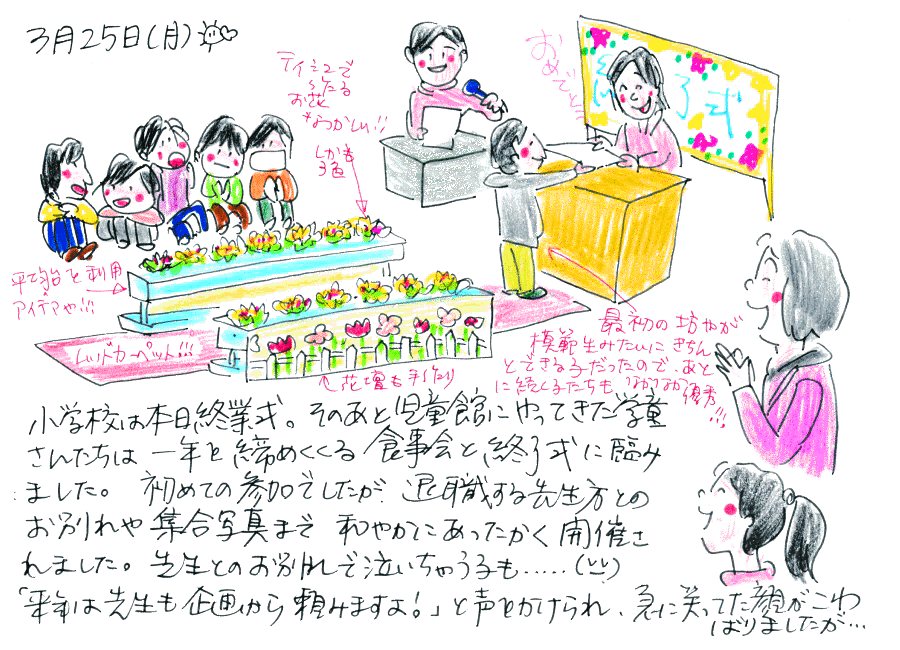 3月25日(月)
ティシュで
できたる
お花
*なつかしい!!
しかも
3色
おめでとう
了式
平均台を利用
アイデアや!!!
レッドカーペット!!!
←花壇も手作り
最初の坊やが
模範生みたいにきちん
とできる子だったので、あと
に続く子たちも、なかなか優秀!!!
小学校は本日終業式。そのあと児童館にやってきた学童
さんたちは一年を締めくくる食事会と終了式に臨み
ました。初めての参加でしたが、退職する先生方との
お別れや集合写真まで和やかにあったかく開催さ
れました。先生とのお別れで泣いちゃう子も.....
「来年は先生も企画から頼みますよ!」と声をかけられ、急に笑ってた顔がこわ
ばりましたが…